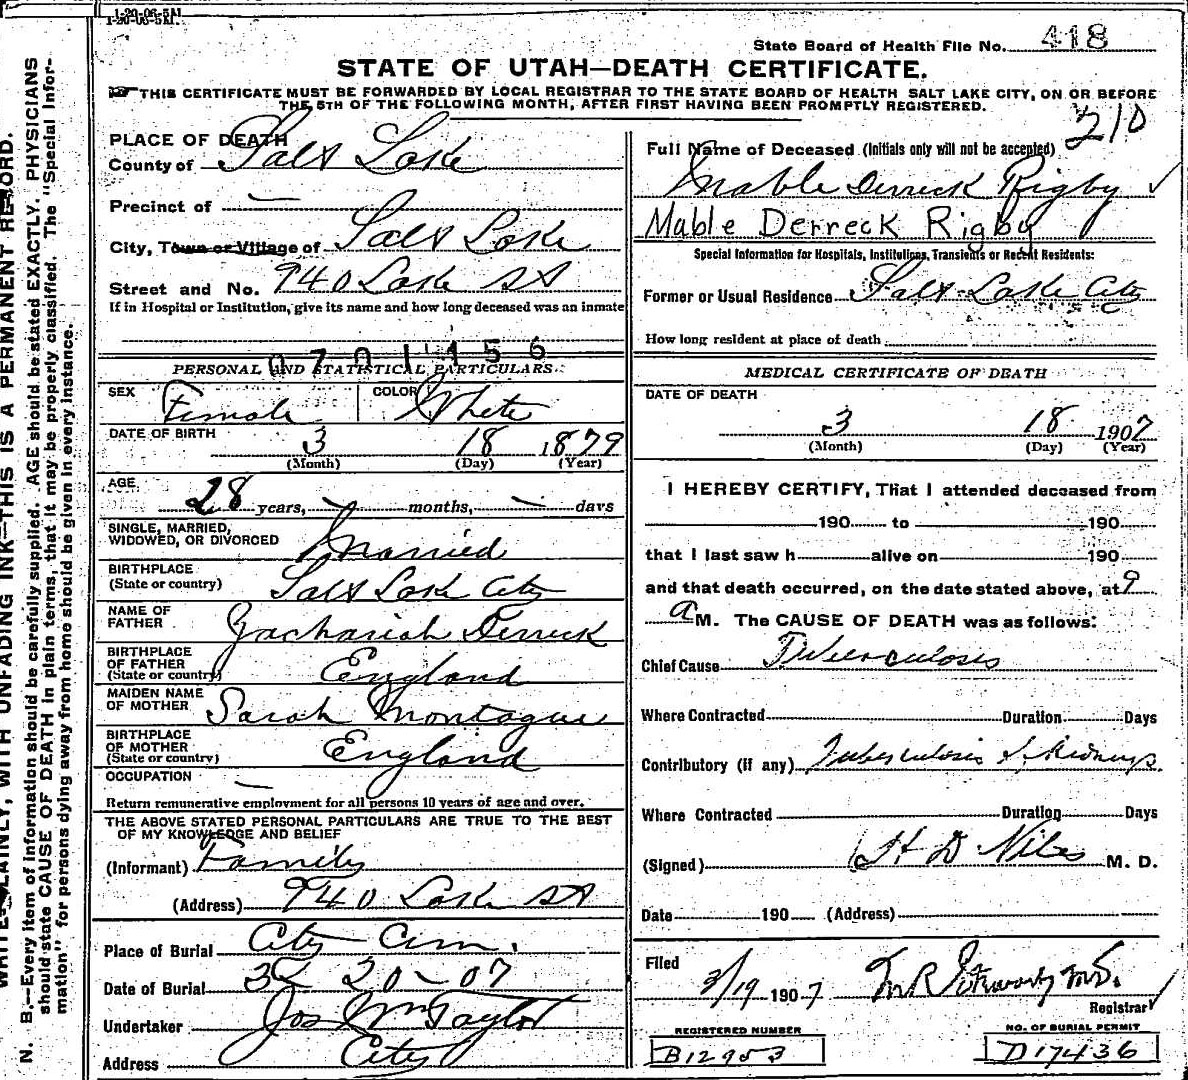 1-20-06-5M.
State Board of Health File No. 418
STATE OF UTAH—DEATH CERTIFICATE.
THIS CERTIFICATE MUST BE FORWARDED BY LOCAL REGISTRAR TO THE STATE BOARD OF HEALTH SALT LAKE CITY, ON OR BEFORE
THE 5TH OF THE FOLLOWING MONTH, AFTER FIRST HAVING BEEN PROMPTLY REGISTERED.
210
PLACE OF DEATH
County of Salt Lake
Precinct of —
City, Town or Village of Salt Lake
Street and No. 940 Lake St
If in Hospital or Institution, give its name and how long deceased was an inmate
Full Name of Deceased (Initials only will not be accepted)
Mable Derreck Rigby
Mable Derreck Rigby
Special Information for Hospitals, Institutions, Transients or Recent Residents:
Former or Usual Residence Salt Lake City
How long resident at place of death
PERSONAL AND STATISTICAL PARTICULARS.
SEX Female COLOR White
DATE OF BIRTH 3 18 1879
(Month) (Day) (Year)
AGE
28 years, — months, — days
SINGLE, MARRIED,
WIDOWED, OR DIVORCED Married
BIRTHPLACE
(State or country) Salt Lake City
NAME OF
FATHER Zachariah Derrick
BIRTHPLACE
OF FATHER
(State or country) England
MAIDEN NAME
OF MOTHER Sarah Montague
BIRTHPLACE
OF MOTHER
(State or country) England
OCCUPATION —
Return remunerative employment for all persons 10 years of age and over.
THE ABOVE STATED PERSONAL PARTICULARS ARE TRUE TO THE BEST
OF MY KNOWLEDGE AND BELIEF
(Informant) Family
(Address) 940 Lake St
Place of Burial City Cem.
Date of Burial 3 20-07
Undertaker Jos Wm Taylor
Address City
MEDICAL CERTIFICATE OF DEATH
DATE OF DEATH
3 18 1907
(Month) (Day) (Year)
I HEREBY CERTIFY, That I attended deceased from
190 to 190
that I last saw h alive on 190
and that death occurred, on the date stated above, at 9
a M. The CAUSE OF DEATH was as follows:
Chief Cause Tuberculosis
Where Contracted Duration Days
Contributory (if any) Tuberculosis of Kidneys.
Where Contracted Duration Days
(Signed) H D Niles M. D.
Date 190 (Address)
Filed
3/19 1907
Registrar
REGISTERED NUMBER
B12953
NO. OF BURIAL PERMIT
D17436
N. B.—Every item of information should be carefully supplied. AGE should be stated EXACTLY. PHYSICIANS
should state CAUSE OF DEATH in plain terms, that it may be properly classified. The "Special Infor-
mation" for persons dying away from home should be given in every instance.
WITH UNFADING INK—THIS IS A PERMANENT RECORD.